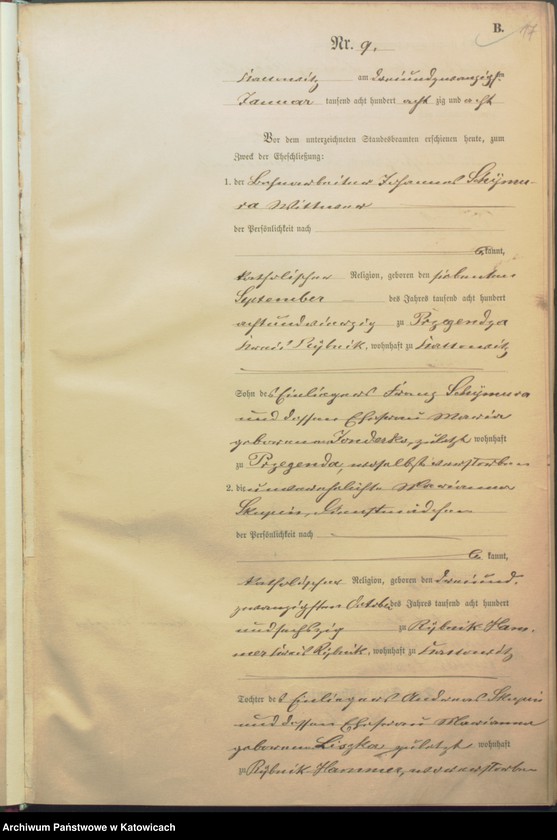 B.
17
Nr. 9.
Kattowitz am dreiundzwanzigsten
Januar tausend acht hundert acht zig und acht
Vor dem unterzeichneten Standesbeamten erschienen heute, zum
Zweck der Eheschließung:
1. der Bahnarbeiter Johannes Schymu-
ra Wittwer
der Persönlichkeit nach
kannt,
katholischer Religion, geboren den siebenten
September des Jahres tausend acht hundert
achtundvierzig zu Przegendza
Kreis Rybnik, wohnhaft zu Kattowitz
Sohn des Einliegers Franz Schymura
und dessen Ehefrau Maria
geborene, zuletzt wohnhaft
zu Przegenda, woselbst verstorben
2. die unverehelichte Marianna
Skupin, Dienstmädchen
der Persönlichkeit nach
kannt,
katholischer Religion, geboren den dreiund-
zwanzigsten October des Jahres tausend acht hundert
undsechszig zu Rybnik Ham-
mer Kreis Rybnik, wohnhaft zu Kattowitz
Tochter des Einliegers Andreas Skupin
und dessen Ehefrau Marianna
geborenen Liszka zuletzt wohnhaft
zu Rybnik Hammer, verstorben
Archiwum Państwowe w Katowicach